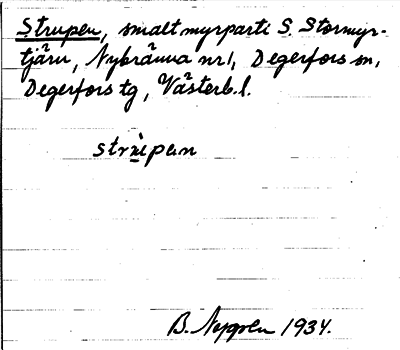 Strupen, smalt myrparti S. Stormyr-
tjärn, Nybränna nr 1, Degerfors sn,
Degerfors tg, Västerb. l.
strùpen
B. Nygren 1934.